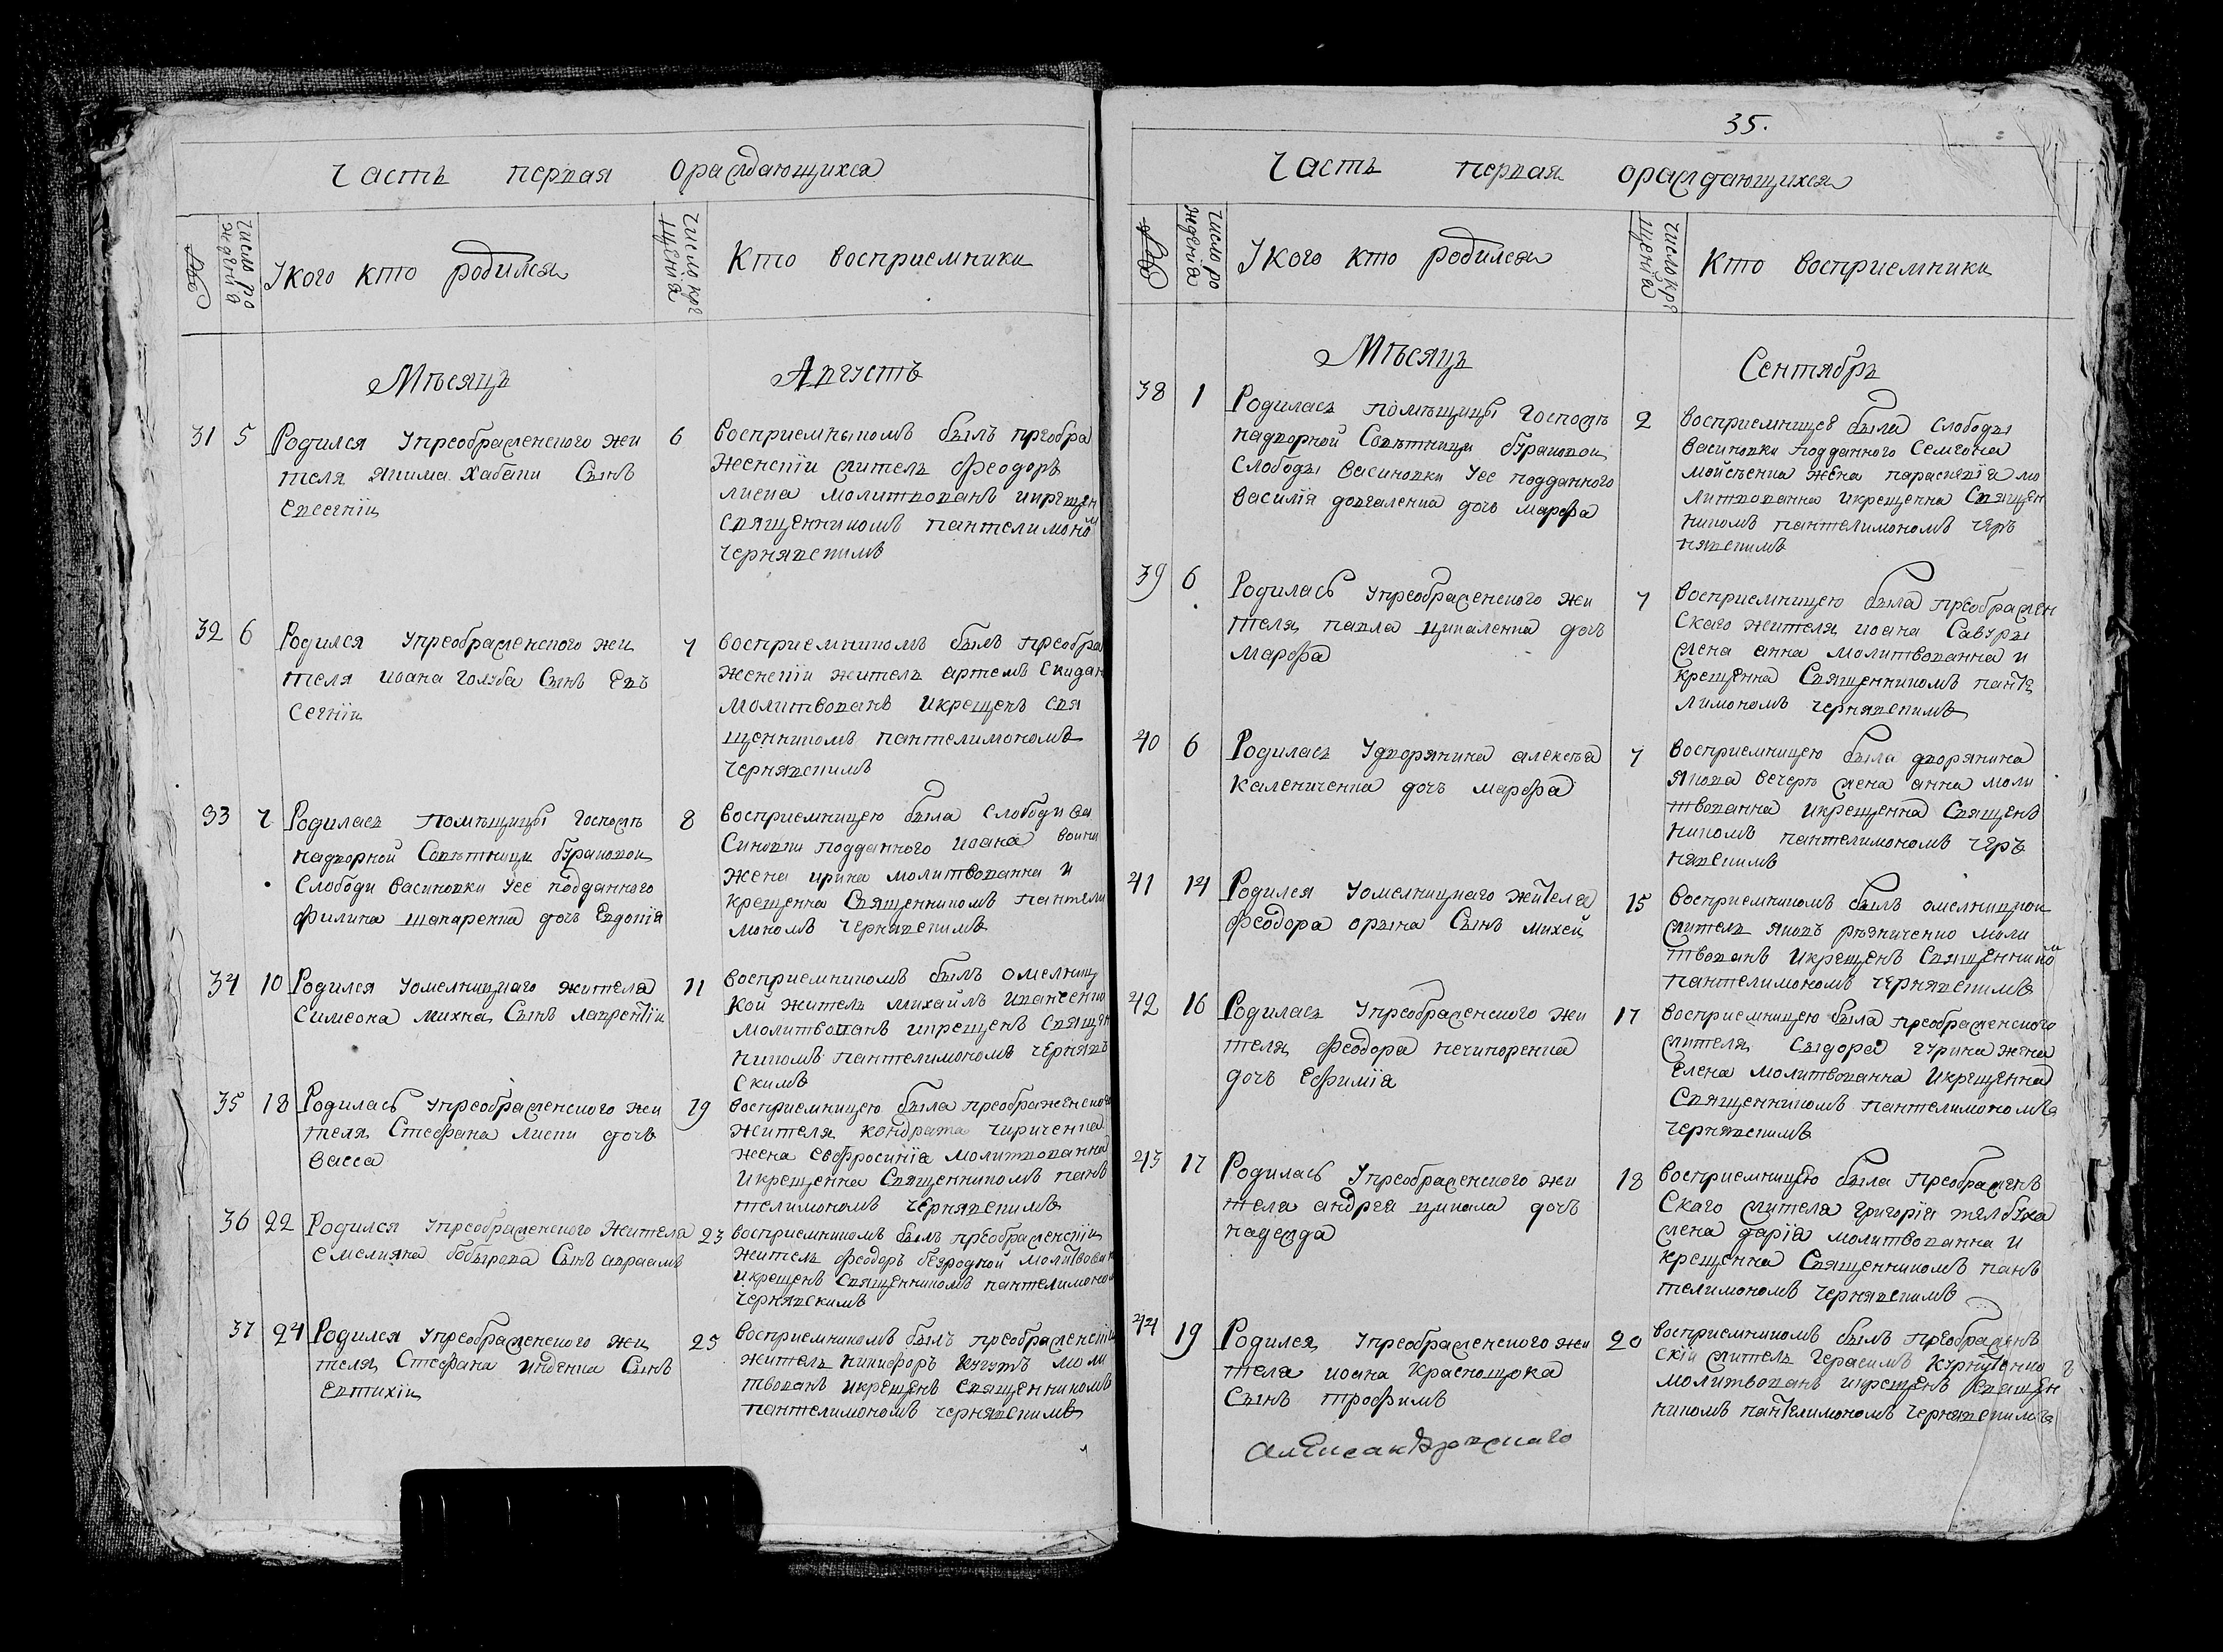 Часть первая ораждающихся
№
число рождения
Укого кто родился
число крещенія
Кто восприемники
Мѣсяцъ Августъ
31 5 Родился упреображенского жи
теля якима хабати Сынъ
евсегній
6 Восприемникомъ былъ преобра
женскій житель феодоръ
лисца молитвованъ икрещен
священникомъ пантелимоно
чернявскимъ
32 6 Родился упреображенского жи
теля иоана голуба Сынъ Евъ
сегній
7 восприемникомъ былъ преобра
женскій житель артемъ скидан
молитвованъ икрещенъ свя
щенникомъ пантелимономъ
чернявскимъ
33 7 Родилась помѣщицы госпожѣ
надворной Совѣтници бураковой
Слободи васиновки уее подданного
филипа шапаренка дочь Евдокія
8 восприемницею была Слободи ва
Синовки подданного иоана
жена ирина молитвованна и
крещенна Священникомъ пантели
мономъ чернявскимъ
34 10 Родился уомелницкаго жителя
Симеона михна Сынъ лаврентій
11 восприемникомъ былъ омелниц
кой житель михаилъ иванченко
молитвованъ икрещенъ Священ
никомъ пантелимономъ чернявъ
скимъ
35 18 Родилась упреображенского жи
теля Стефана лисци дочь
васса
19 восприемницею была преображенского
жителя кондрата чириченка
жена евфросинія молитвованна
икрещенна Священникомъ панъ
телимономъ чернявскимъ
36 22 Родился упреображенского жителя
емелияна бобырова Сынъ авраамъ
23 восприемникомъ былъ преображенскій
житель феодоръ безродной молитвован
икрещенъ Священникомъ пантелимоно
чернявскимъ
37 24 Родился упреображенского жи
теля Стефана индека Сынъ
евтихій
25 восприемникомъ былъ преображенскій
житель никифоръ моли
твованъ икрещенъ священникомъ
пантелимономъ чернявскимъ
35.
Часть первая ораждающихся
№
число рождения
Укого кто родился
число крещенія
Кто восприемники
Мѣсяцъ Сентябрь
38 1 Родилась помѣщицы госпожѣ
надворной Совѣтници бураковой
Слободы васиновки уее подданного
василія довгаленка дочь марфа
2 восприемницею была Слободы
васиновки подданного Семиона
мойсѣенка жена параскевія мо
литвованна икрещенна Священ
никомъ пантелимономъ черъ
нявскимъ
39 6 Родилась упреображенского жи
теля павла цикаленка дочь
марфа
7 восприемницею была преображен
Скаго жителя иоана Савуры
жена анна молитвованна и
крещенна Священникомъ пантe
лимономъ чернявскимъ
40 6 Родилась удворянина алексѣя
калениченка дочь марфа
7 восприемницею была дворянина
якова вечеръ жена анна моли
твованна икрещенна Священъ
никомъ пантелимономъ черъ
нявскимъ
41 14 Родился уомелницкаго жителя
феодора Сынъ михей
15 восприемникомъ былъ омелницкой
житель яковъ рѣзниченко моли
твованъ икрещенъ Священнико
пантелимономъ чернявскимъ
42 16 Родилась упреображенского жи
теля феодора нечипоренка
дочь ефимія
17 восприемницею была преображенского
жителя сыдора гурина жена
елена молитвованна икрещенна
Священникомъ пантелимономъ
чернявскимъ
43 17 Родилась упреображенского жи
теля андрея цикала дочь
надежда
18 восприемницею была преображенъ
Скаго жителя григорія желбуха
жена дарія молитвованна и
крещенна Священникомъ панъ
телимономъ чернявскимъ
44 19 Родился упреображенского жи
теля иоана краснощока
Сынъ трофимъ
20 восприемникомъ былъ преображенъ
скій житель герасимъ
молитвованъ икрещенъ священ
никомъ пантелимономъ чернявскимъ
Александровскаго